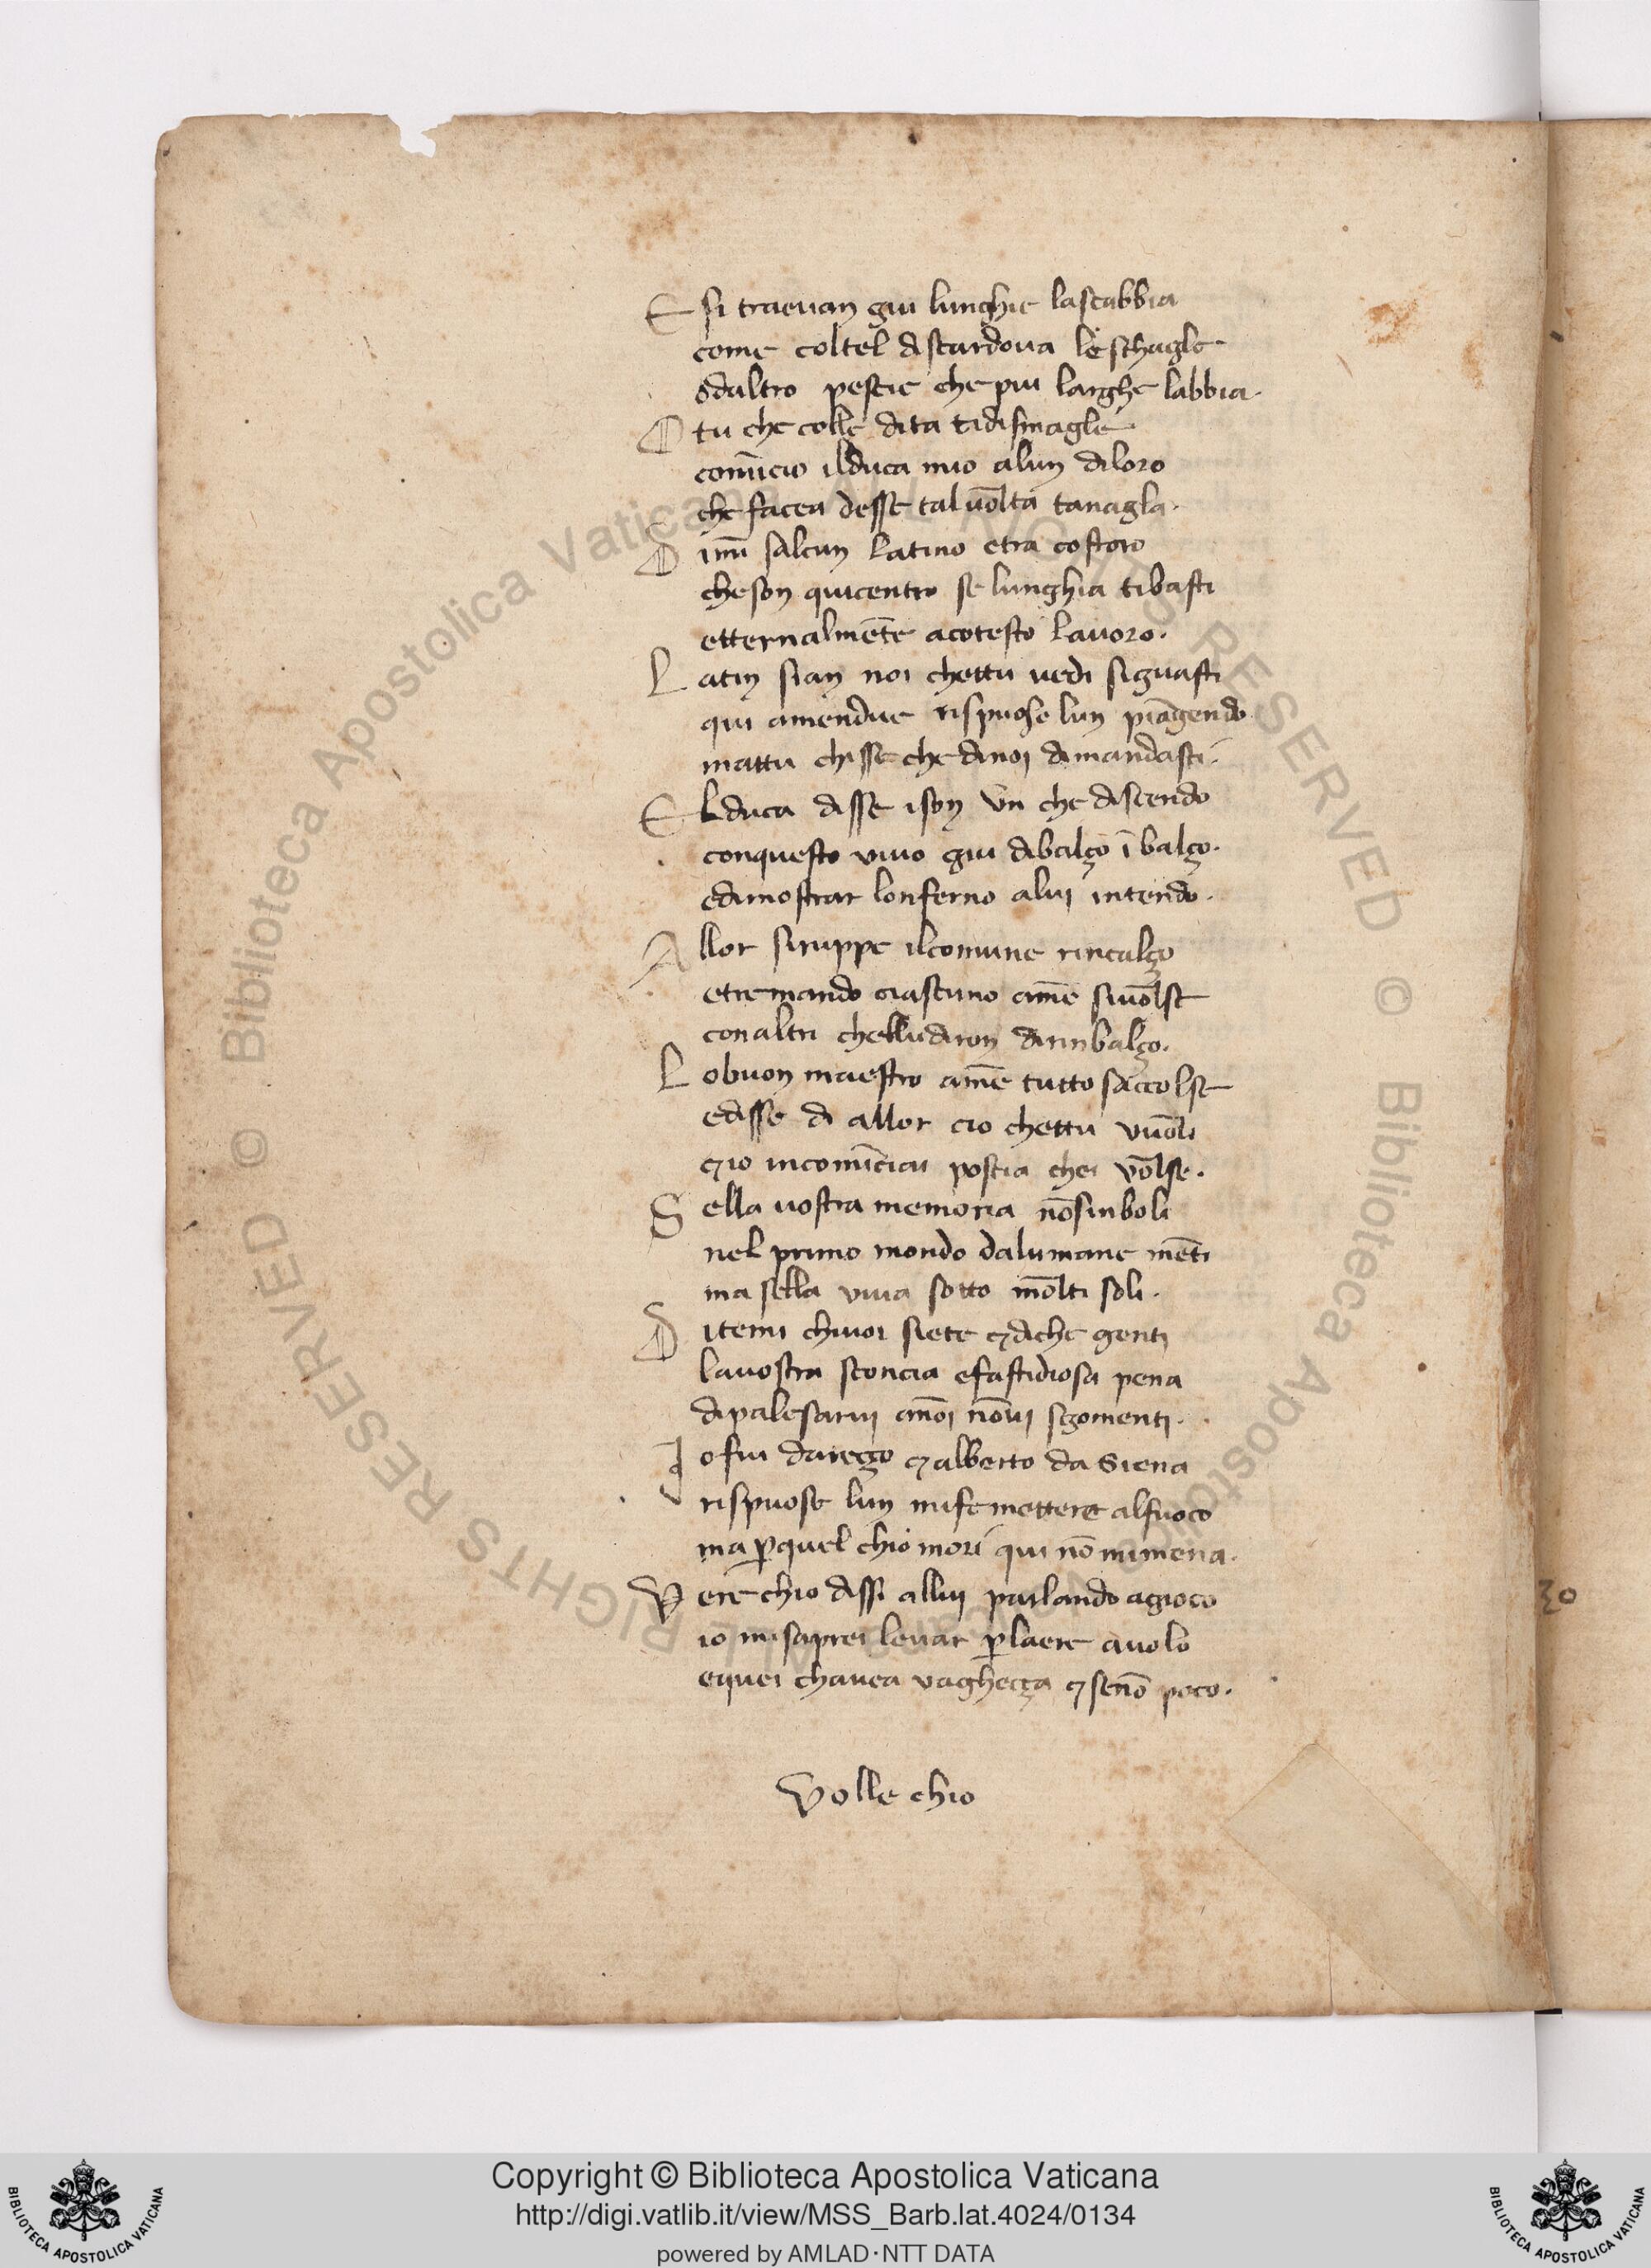 E si traevan giu lunghie lascabbia
come coltel discardova le schagle
o daltro pescie che piu larghe labbia.
O tu che colle dita tidismagle
comīcio ilduca mio alun diloro
che facea desse tal uōlta tanagla.
D immi salcun latino etra costoro
cheson quicentro se lunghia tibasti
etternalmēte acotesto lavoro.
L atin sian noi chettu vedi siguasti
qui amendue rispuose lun piāgendo
mattu chisse che dinoi dimandasti.
E lduca disse ison un che discendo
conquesto vivo giu dibalço ī balço.
edimostrar lonferno alui intendo.
A llor siruppe ilcomune rincalço
etremando ciascuno amē siuōlse
con altri chelludiron dirinbalço.
L obuon maestro amē tutto saccolse
edisse di allor cio chettu vuōli
⁊io incomīciai poscia chei vōlse.
S ella vostra memoria nōsinboli
nel primo mondo dalumane mēti
ma sella viva sotto mōlti soli.
D itemi chivoi siete ⁊diche genti
lavostra sconcia efastidiosa pena
dipalesarui anōi nōvi sgomenti.
I o fui dareço ⁊ alberto da Siena
rispuose lun mife mettere alfuoco
ma ꝑquel chio mori qui nō mimena.
V ere chio dissi allui parlando agioco
io misaprei levar ꝑlaere avolo
equei chavea vagheçça ⁊ senō poco.
Volle chio
30
© Biblioteca Apostolica Vaticana ALL RIGHTS RESERVED © Biblioteca Apostolica Vaticana ALL RIGHTS RESERVED
Copyright © Biblioteca Apostolica Vaticana
http://digi.vatlib.it/view/MSS_Barb.lat.4024/0134
powered by AMLAD·NTT DATA
BIBLIOTECA APOSTOLICA VATICANA
BIBLIOTECA APOSTOLICA VATICANA